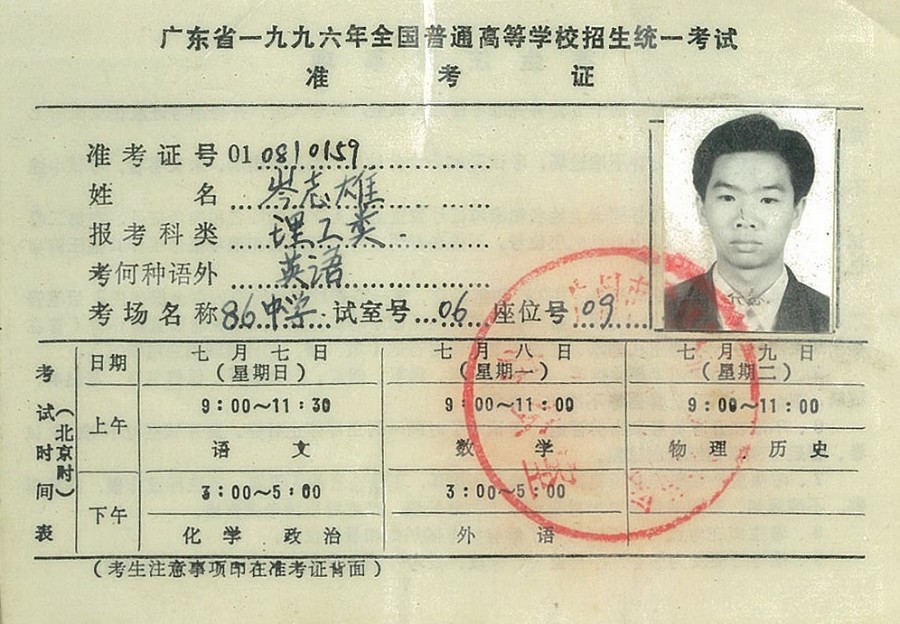 广东省一九九六年全国普通高等学校招生统一考试
准考证
准考证号 010810159
姓名 岑志雄
报考科类 理工类
考何种语外 英语
考场名称 86中学 试室号 06 座位号 09
考试时间表（北京时间）
日期 七月七日（星期日） 七月八日（星期一） 七月九日（星期二）
上午 9:00～11:30 9:00～11:00 9:00～11:00
语文 数学 物理．历史
下午 3:00～5:00 3:00～5:00
化学 政治 外语
（考生注意事项印在准考证背面）